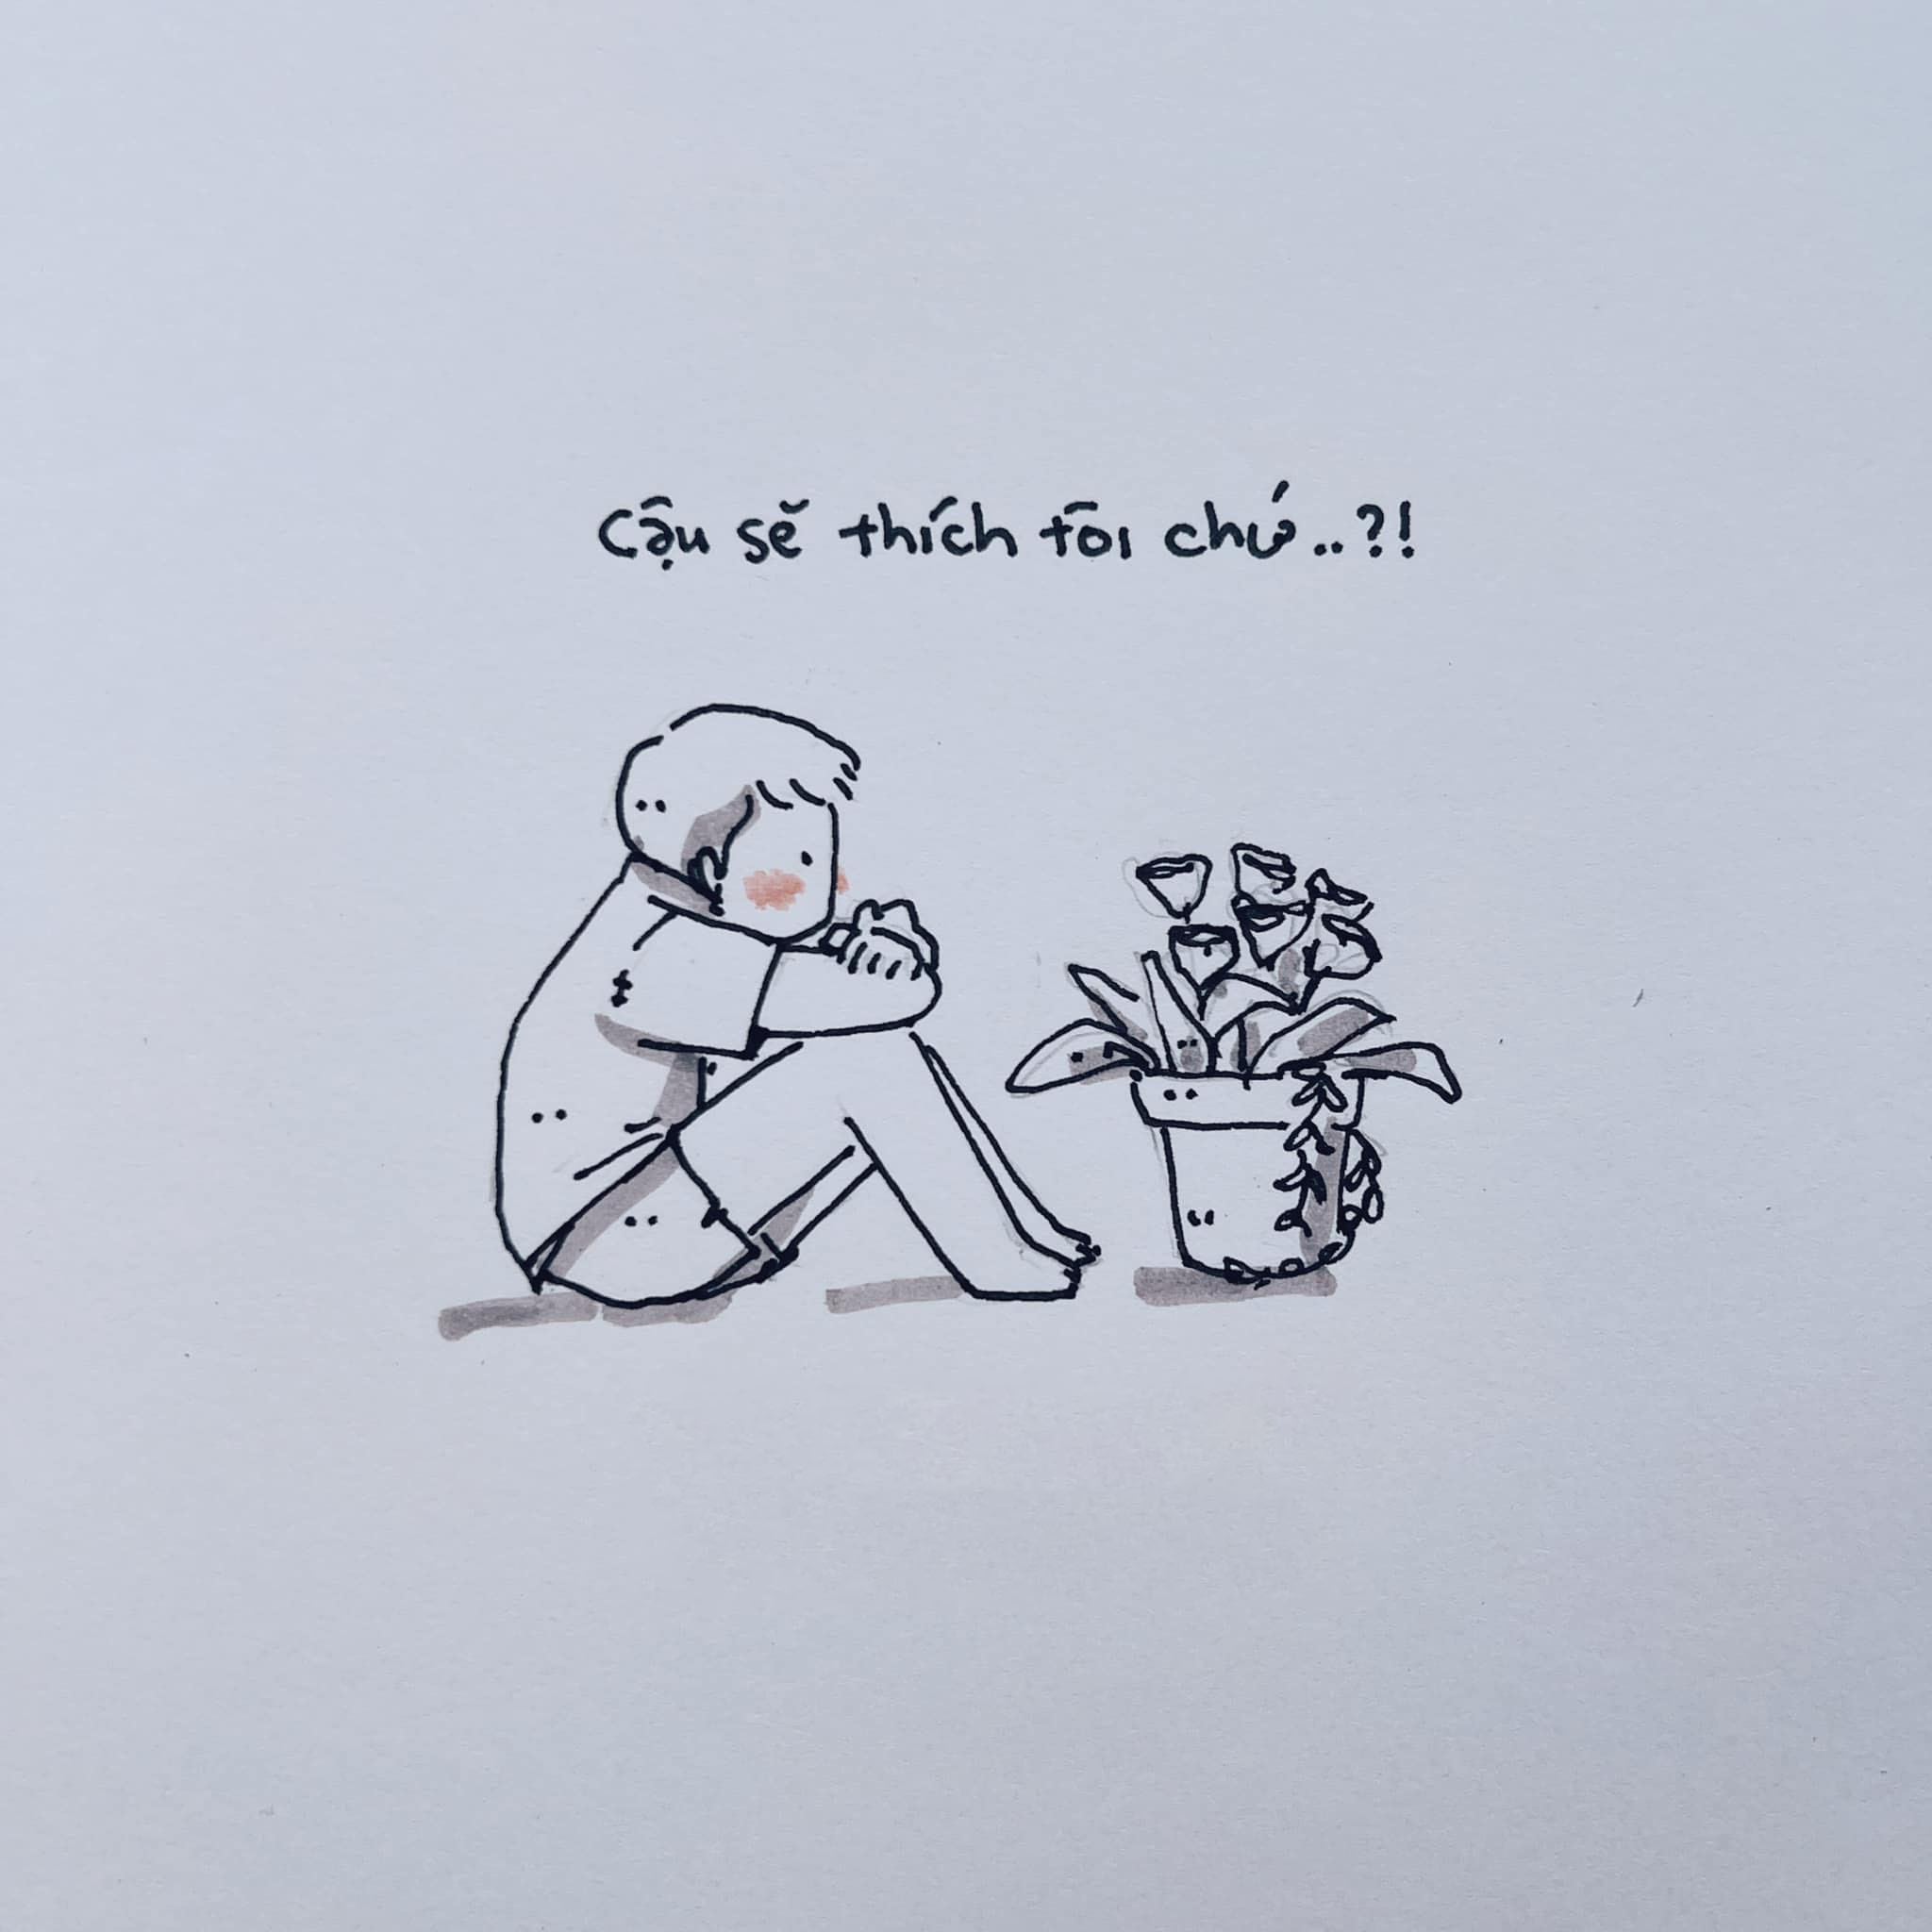 Cậu sẽ thích tôi chứ..?!